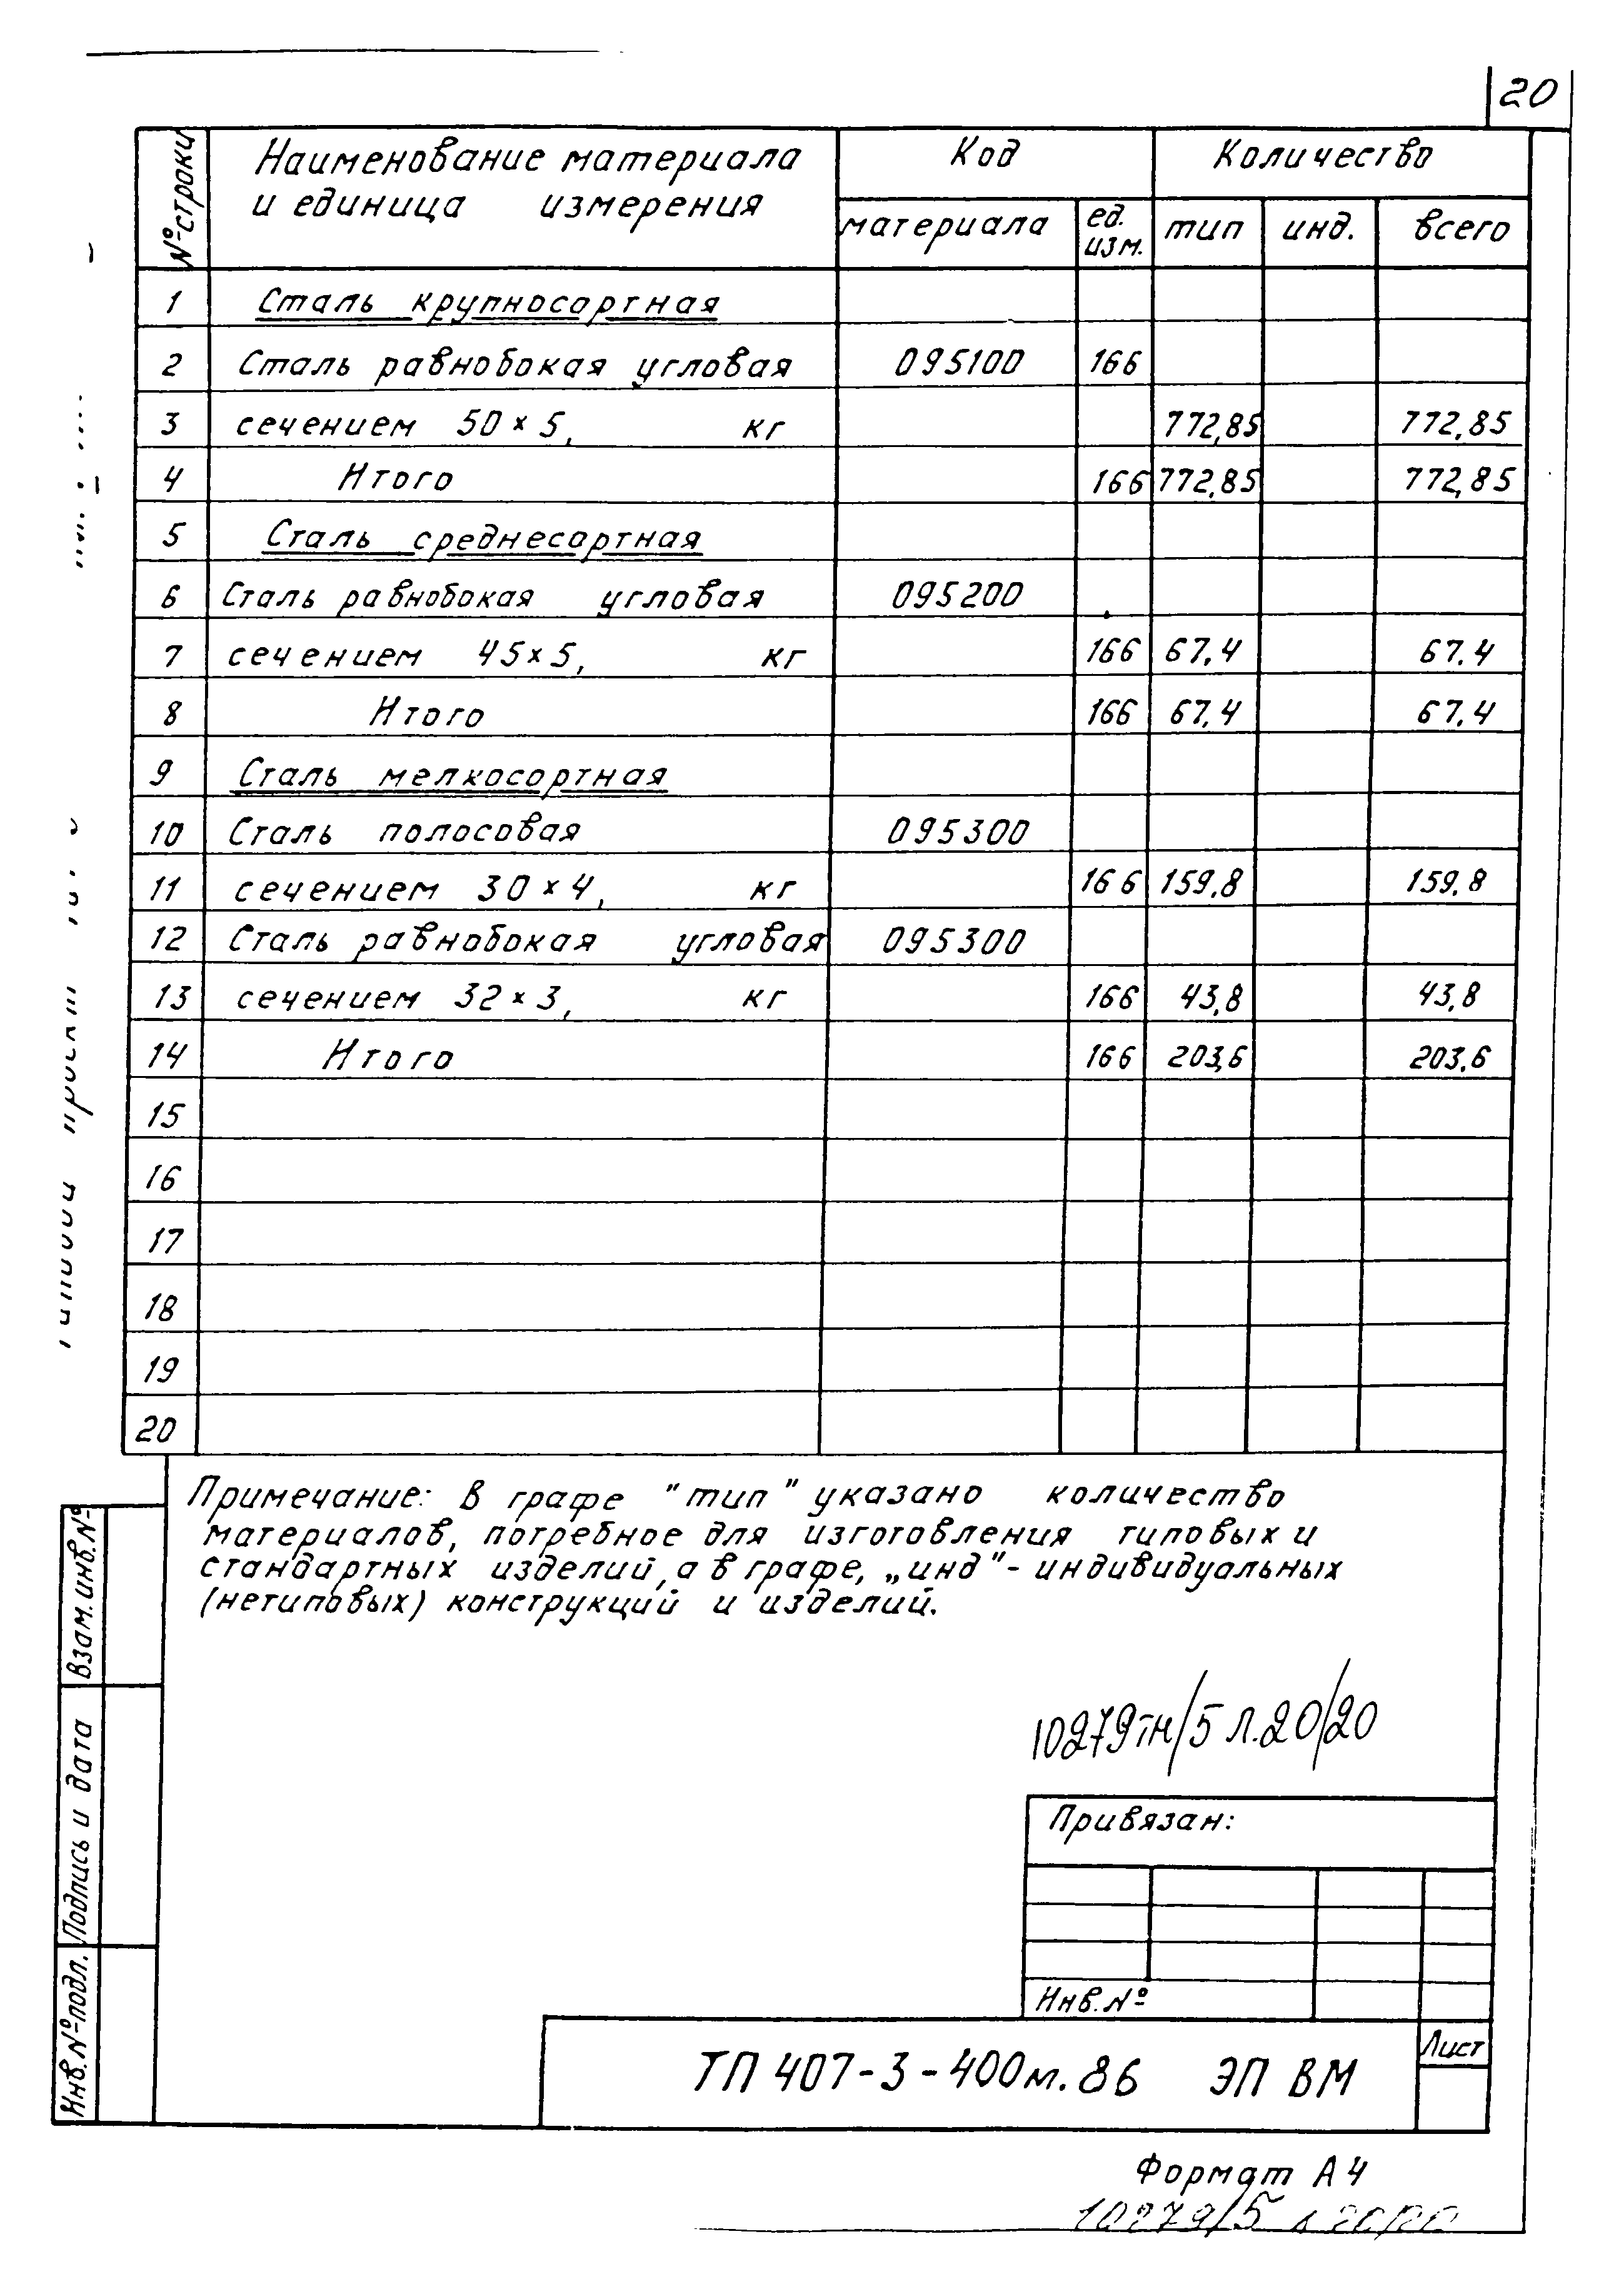 20
№ строки
Наименование материала
и единица измерения
Код
Количество
материала
ед. изм.
тип
инд.
всего
1 Сталь крупносортная
2 Сталь равнобокая угловая 095100 166
3 сечением 50×5, кг 772,85 772,85
4 Итого 166 772,85 772,85
5 Сталь среднесортная
6 Сталь равнобокая угловая 095200
7 сечением 45×5, кг 166 67,4 67,4
8 Итого 166 67,4 67,4
9 Сталь мелкосортная
10 Сталь полосовая 095300
11 сечением 30×4, кг 166 159,8 159,8
12 Сталь равнобокая угловая 095300
13 сечением 32×3, кг 166 43,8 43,8
14 Итого 166 203,6 203,6
15
16
17
18
19
20
Примечание: В графе "тип" указано количество
материалов, потребное для изготовления типовых и
стандартных изделий, а в графе, „инд"- индивидуальных
(нетиповых) конструкций и изделий.
10279тм/5 л.20/20
Привязан:
Инв.№
ТП 407-3-400м.86 ЭП ВМ
Лист
Взам. инв.№
Подпись и дата
Инв.№ подл.
Формат А4
10279/5 л 20/20